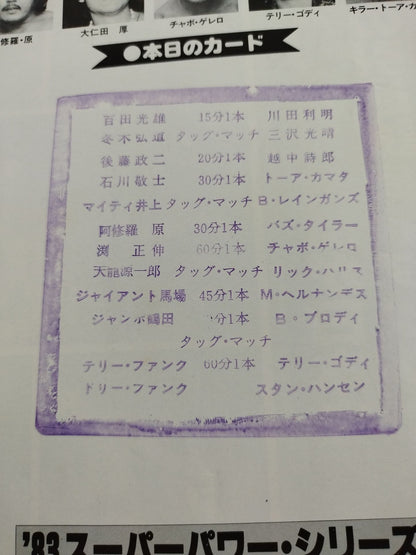 修羅・原
大仁田 厚
チャボ・ゲレロ
テリー・ゴディ
キラー・トーア・カ
●本日のカード
百田光雄 15分1本 川田利明
冬木弘道 タッグ・マッチ 三沢光晴
後藤政二 20分1本 越中詩郎
石川敬士 30分1本 トーア・カマタ
マイティ井上 タッグ・マッチ B・レインガンズ
阿修羅 原 30分1本 バズ・タイラー
渕 正伸 60分1本 チャボ・ゲレロ
天龍源一郎 タッグ・マッチ リック・ハリス
ジャイアント馬場 45分1本 M・ヘルナンデス
ジャンボ鶴田 分1本 B・ブロディ
タッグ・マッチ
テリー・ファンク 60分1本 テリー・ゴディ
ドリー・ファンク スタン・ハンセン
'83スーパーパワー・シリーズ